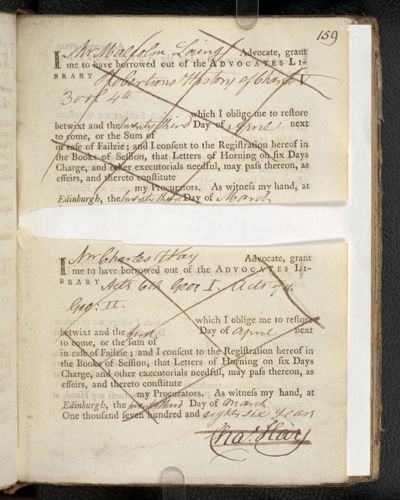 159
I Mr Malcolm Laing Advocate, grant
me to have borrowed out of the ADVOCATES LI-
BRARY Robertsons History of Charles V
3 vol 4to
which I oblige me to restore
betwixt and the twenty third Day of April next
to come, or the Sum of
in case of Failzie; and I consent to the Registration hereof in
the Books of Session, that Letters of Horning on six Days
Charge, and other executorials needful, may pass thereon, as
effeirs, and thereto constitute
my Procurators. As witness my hand, at
Edinburgh, the twenty third Day of March
I Mr Charles Hay Advocate, grant
me to have borrowed out of the ADVOCATES LI-
BRARY Acts 6th Geor I. Acts
Geo: II.
which I oblige me to restore
betwixt and the Day of April next
to come, or the sum of
in case of Failzie; and I consent to the Registration hereof in
the Books of Session, that Letters of Horning on six Days
Charge, and other executorials needful, may pass thereon, as
effeirs, and thereto constitute
my Procurators. As witness my hand, at
Edinburgh, the Day of March
One thousand seven hundred and eighty six years
Cha: Hay